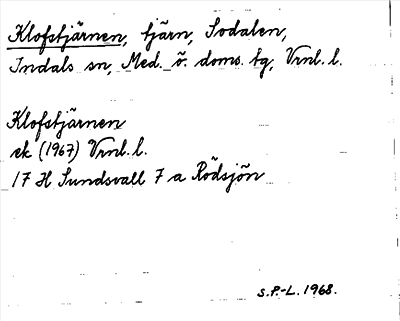 Klofstjärnen, tjärn, Sodalen,
Indals sn, Med. ö. doms. tg, Vrnl. l.
Klofstjärnen
ek (1967) Vrnl. l.
17 H Sundsvall 7 a Rödsjön
S.P.-L. 1968.